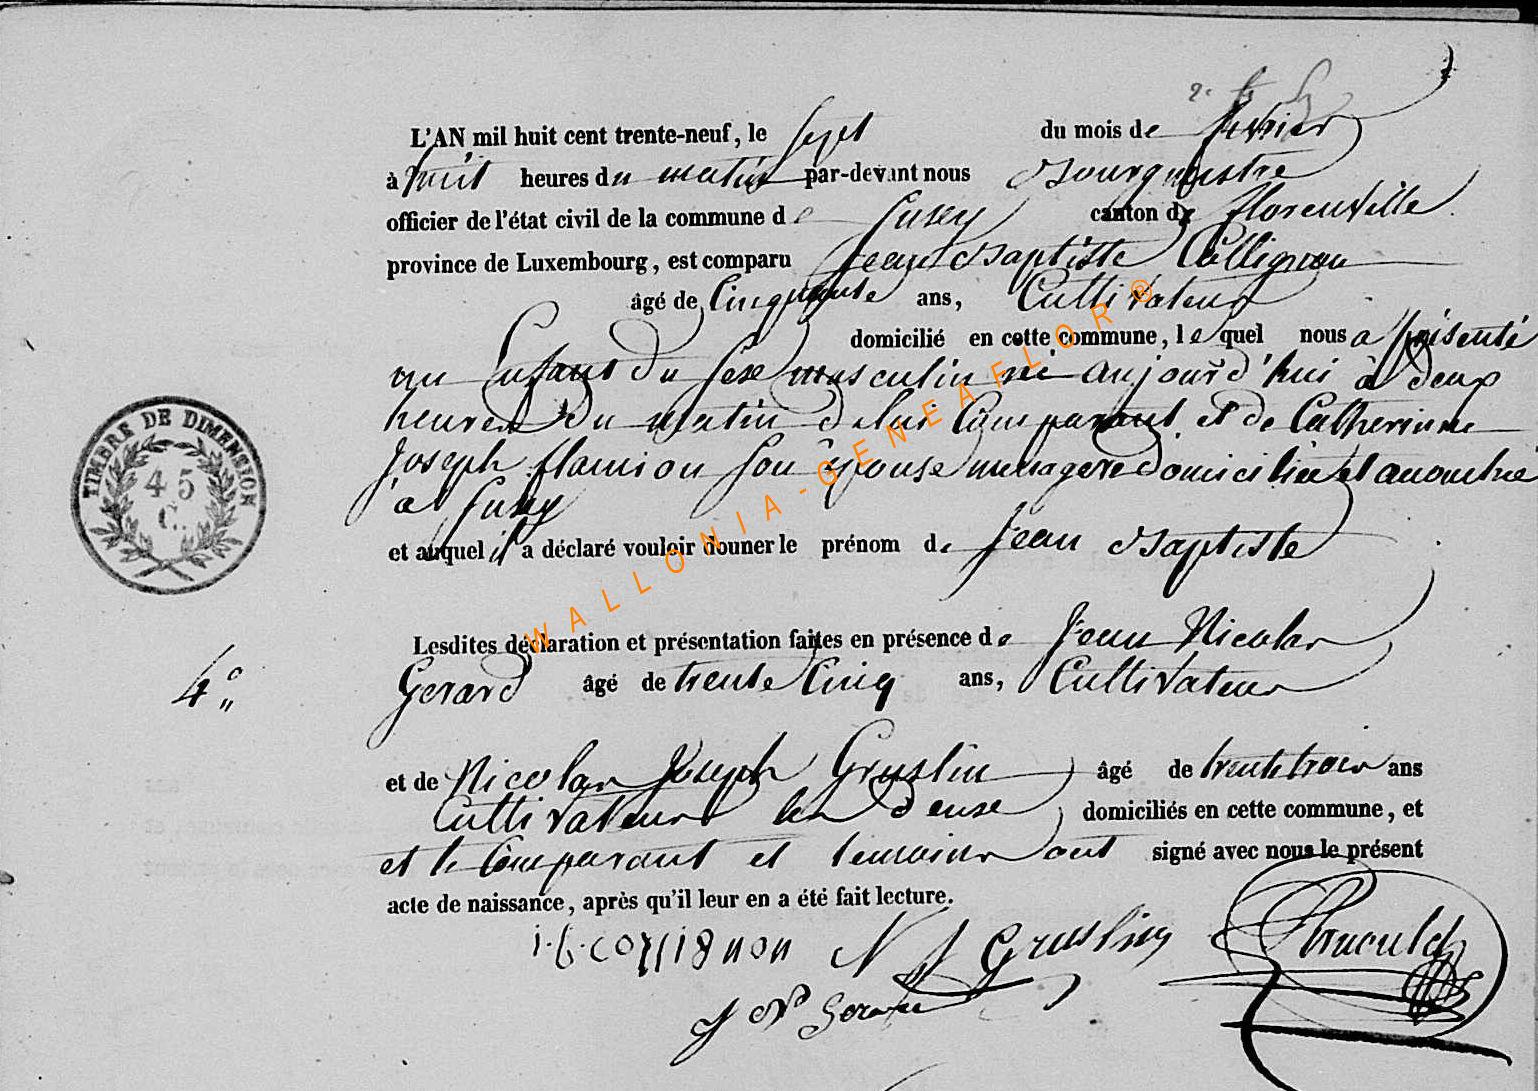 L'AN mil huit cent trente-neuf, le sept du mois de fevrier
à huit heures du matin par-devant nous Bourgmestre
officier de l'état civil de la commune de Fusey canton de florenville
province de Luxembourg, est comparu Jean Baptiste Collignon
âgé de Cinquante ans, Cultivateur
domicilié en cette commune, lequel nous a présenté
un Enfant du sexe masculin né aujourd'hui à deux
heures du matin de lui Comparant et de Catherinne
Joseph flamion son épouse menagere domiciliée et accouchée
à Fusey
et auquel il a déclaré vouloir donner le prénom de Jean Baptiste
Lesdites déclaration et présentation faites en présence de Jean Nicolas
4°
Gerard âgé de trente Cinq ans, Cultivateur
et de Nicolas Joseph Gruslin âgé de trente trois ans
Cultivateur les deux domiciliés en cette commune, et
et le Comparant et temoins ont signé avec nous le présent
acte de naissance, après qu'il leur en a été fait lecture.
j.b. collignon N J Gruslin
J N Gerard
TIMBRE DE DIMENSION
45
C.
WALLONIA-GENEAFLOR®